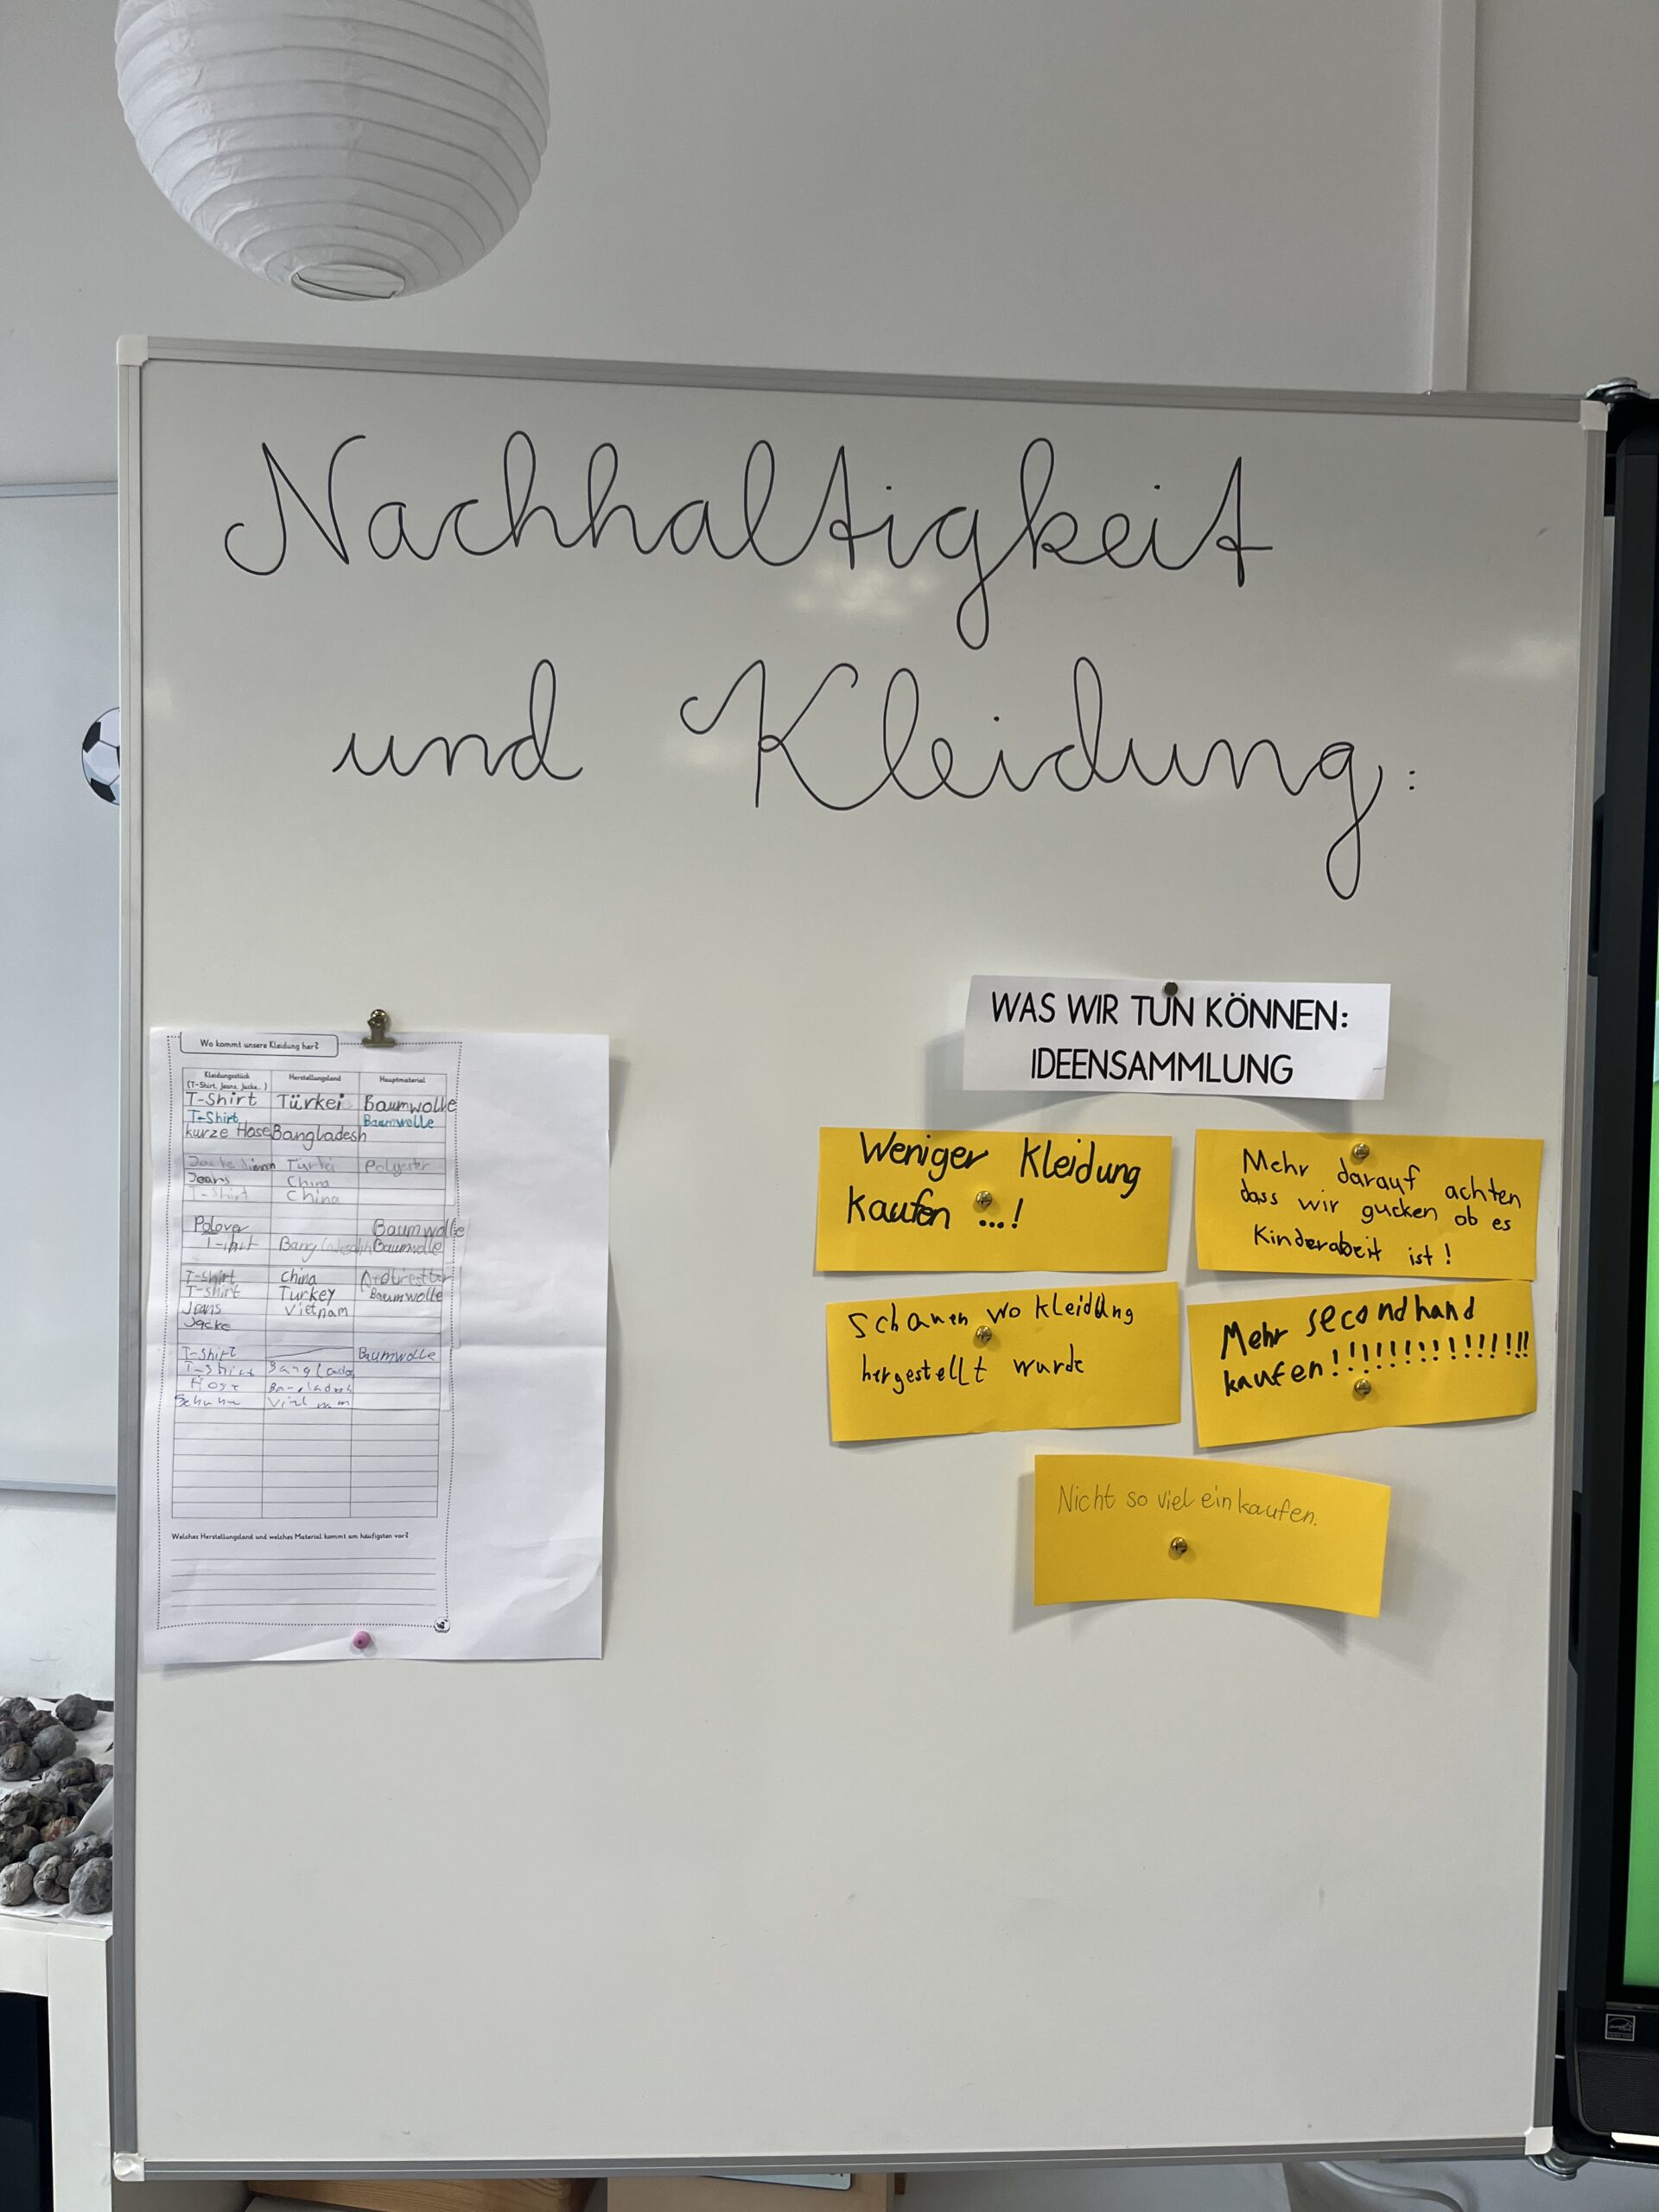 Nachhaltigkeit
und Kleidung:
Wo kommt unsere Kleidung her?
Kleidungsstück Herstellungsland Hauptmaterial
(T-Shirt, Jeans, Jacke...)
T-Shirt Türkei Baumwolle
T-Shirt Baumwolle
kurze Hose Bangladesh
Jacke Türkei Polyester
Jeans China
T-Shirt China
Polover Baumwolle
Baumwolle
T-shirt China
T-shirt Turkey Baumwolle
Jeans Vietnam
Jacke
T-Shirt Baumwolle
Welches Herstellungsland und welches Material kommt am häufigsten vor?
WAS WIR TUN KÖNNEN:
IDEENSAMMLUNG
Weniger Kleidung
kaufen ...!
Mehr darauf achten
dass wir gucken ob es
Kinderabeit ist!
Schauen wo kleidung
hergestellt wurde
Mehr secondhand
kaufen!!!!!!!!!!!!!!!
Nicht so viel einkaufen.